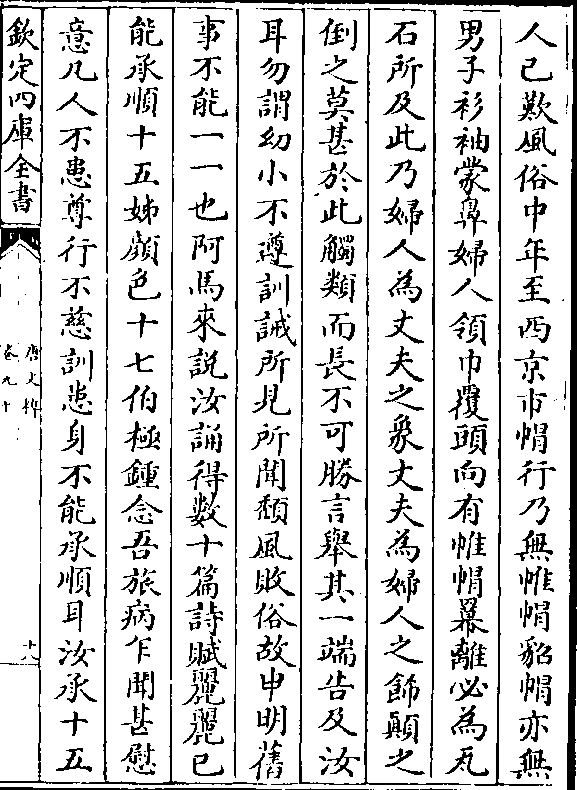 人已歎風俗中年至西京市帽行乃無帷帽貂帽亦無
男子衫袖蒙鼻婦人領巾覆頭向有帷帽羃離必為瓦
石所及此乃婦人為丈夫之象丈夫為婦人之飾顛之
倒之莫甚於此觸類而長不可勝言舉其一端告及汝
耳勿謂幼小不遵訓誡所見所聞頹風敗俗故申明舊
事不能一一也阿馬來説汝誦得數十篇詩賦麗麗已
能承順十五姊顔色十七伯極鍾念吾旅病乍聞甚慰
意凡人不患尊行不慈訓患身不能承順耳汝承十五
欽定四庫全書
唐文粹
卷九十
十八